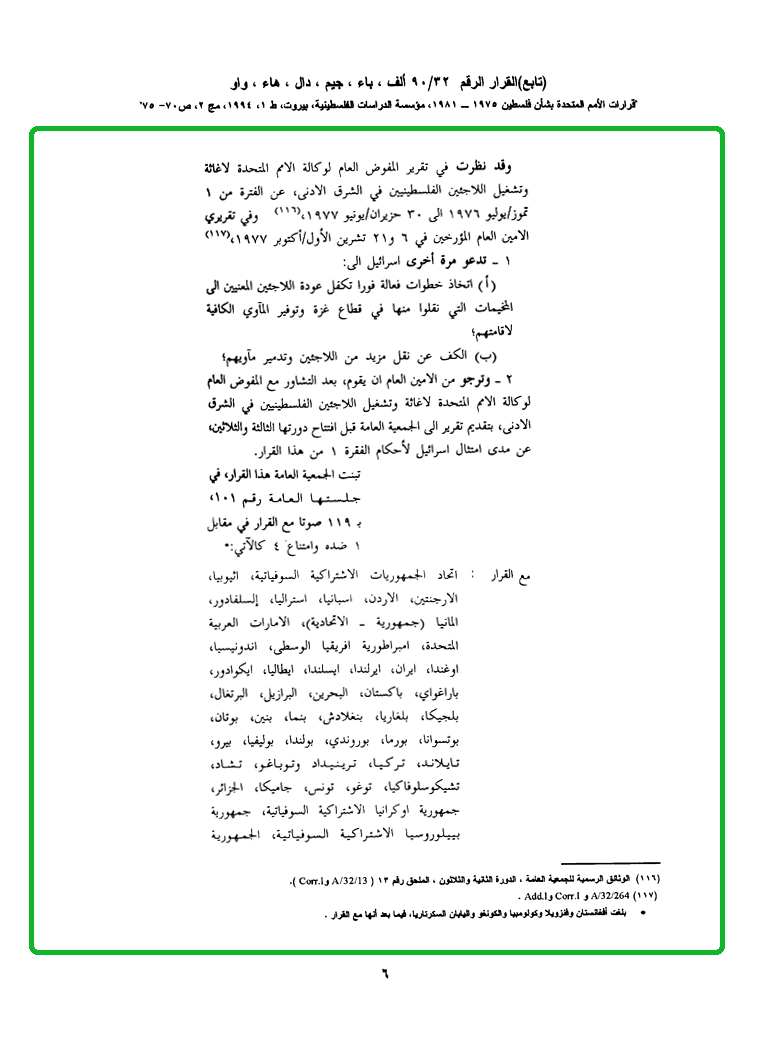 (تابع)القرار الرقم ٩٠/٣٢ ألف ، باء ، جيم ، دال ، هاء ، واو
"قرارات الأمم المتحدة بشأن فلسطين ١٩٧٥ ــ ١٩٨١، مؤسسة الدراسات الفلسطينية، بيروت، ط ١، ١٩٩٤، مج ٢، ص٧٠- ٧٥"
وقد نظرت في تقرير المفوض العام لوكالة الامم المتحدة لاغاثة
وتشغيل اللاجئين الفلسطينيين في الشرق الادنى، عن الفترة من ١
تموز/يوليو ١٩٧٦ الى ٣٠ حزيران/يونيو ١٩٧٧،(١١٦) وفي تقريري
الامين العام المؤرخين في ٦ و٢١ تشرين الأول/أكتوبر ١٩٧٧،(١١٧)
١ ـ تدعو مرة أخرى اسرائيل الى:
(أ) اتخاذ خطوات فعالة فورا تكفل عودة اللاجئين المعنيين الى
المخيمات التي نقلوا منها في قطاع غزة وتوفير المآوي الكافية
لاقامتهم؛
(ب) الكف عن نقل مزيد من اللاجئين وتدمير مآويهم؛
٢ ـ وترجو من الامين العام ان يقوم، بعد التشاور مع المفوض العام
لوكالة الامم المتحدة لاغاثة وتشغيل اللاجئين الفلسطينيين في الشرق
الادنى، بتقديم تقرير الى الجمعية العامة قبل افتتاح دورتها الثالثة والثلاثين،
عن مدى امتثال اسرائيل لأحكام الفقرة ١ من هذا القرار.
تبنت الجمعية العامة هذا القرار، في
جلستها العامة رقم ١٠١،
بـ ١١٩ صوتا مع القرار في مقابل
١ ضده وامتناع ٤ كالآتي:*
مع القرار : اتحاد الجمهوريات الاشتراكية السوفياتية، اثيوبيا،
الارجنتين، الاردن، اسبانيا، استراليا، إلسلفادور،
المانيا (جمهورية ـ الاتحادية)، الامارات العربية
المتحدة، امبراطورية افريقيا الوسطى، اندونيسيا،
اوغندا، ايران، ايرلندا، ايسلندا، ايطاليا، ايكوادور،
باراغواي، باكستان، البحرين، البرازيل، البرتغال،
بلجيكا، بلغاريا، بنغلادش، بنما، بنين، بوتان،
بوتسوانا، بورما، بوروندي، بولندا، بوليفيا، بيرو،
تايلاند، تركيا، ترينيداد وتوباغو، تشاد،
تشيكوسلوفاكيا، توغو، تونس، جاميكا، الجزائر،
جمهورية اوكرانيا الاشتراكية السوفياتية، جمهورية
بييلوروسيا الاشتراكية السوفياتية، الجمهورية
(١١٦) الوثائق الرسمية للجمعية العامة ، الدورة الثانية والثلاثون ، الملحق رقم ١٣ ( A/32/13 وCorr.1 ).
(١١٧) A/32/264 و Corr.1 وAdd.1 .
* بلغت أفغانستان وفنزويلا وكولومبيا والكونغو واليابان السكرتاريا، فيما بعد أنها مع القرار .
٦